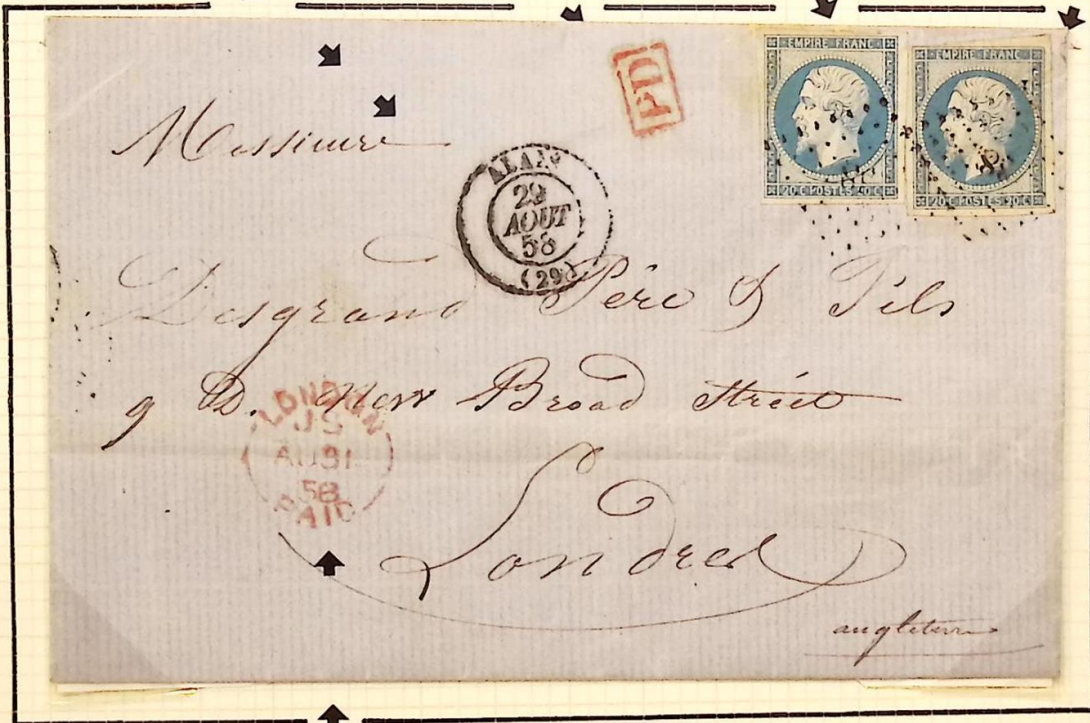 EMPIRE FRANC
20 C POSTES 20 C
EMPIRE FRANC
20 C POSTES 20 C
PD
ALAIS
29
AOUT
58
(29)
Messieurs
Desgrand Père & Fils
9 D. New Broad Street
LONDON
JS
AU 31
58
PAID
Londres
angleterre